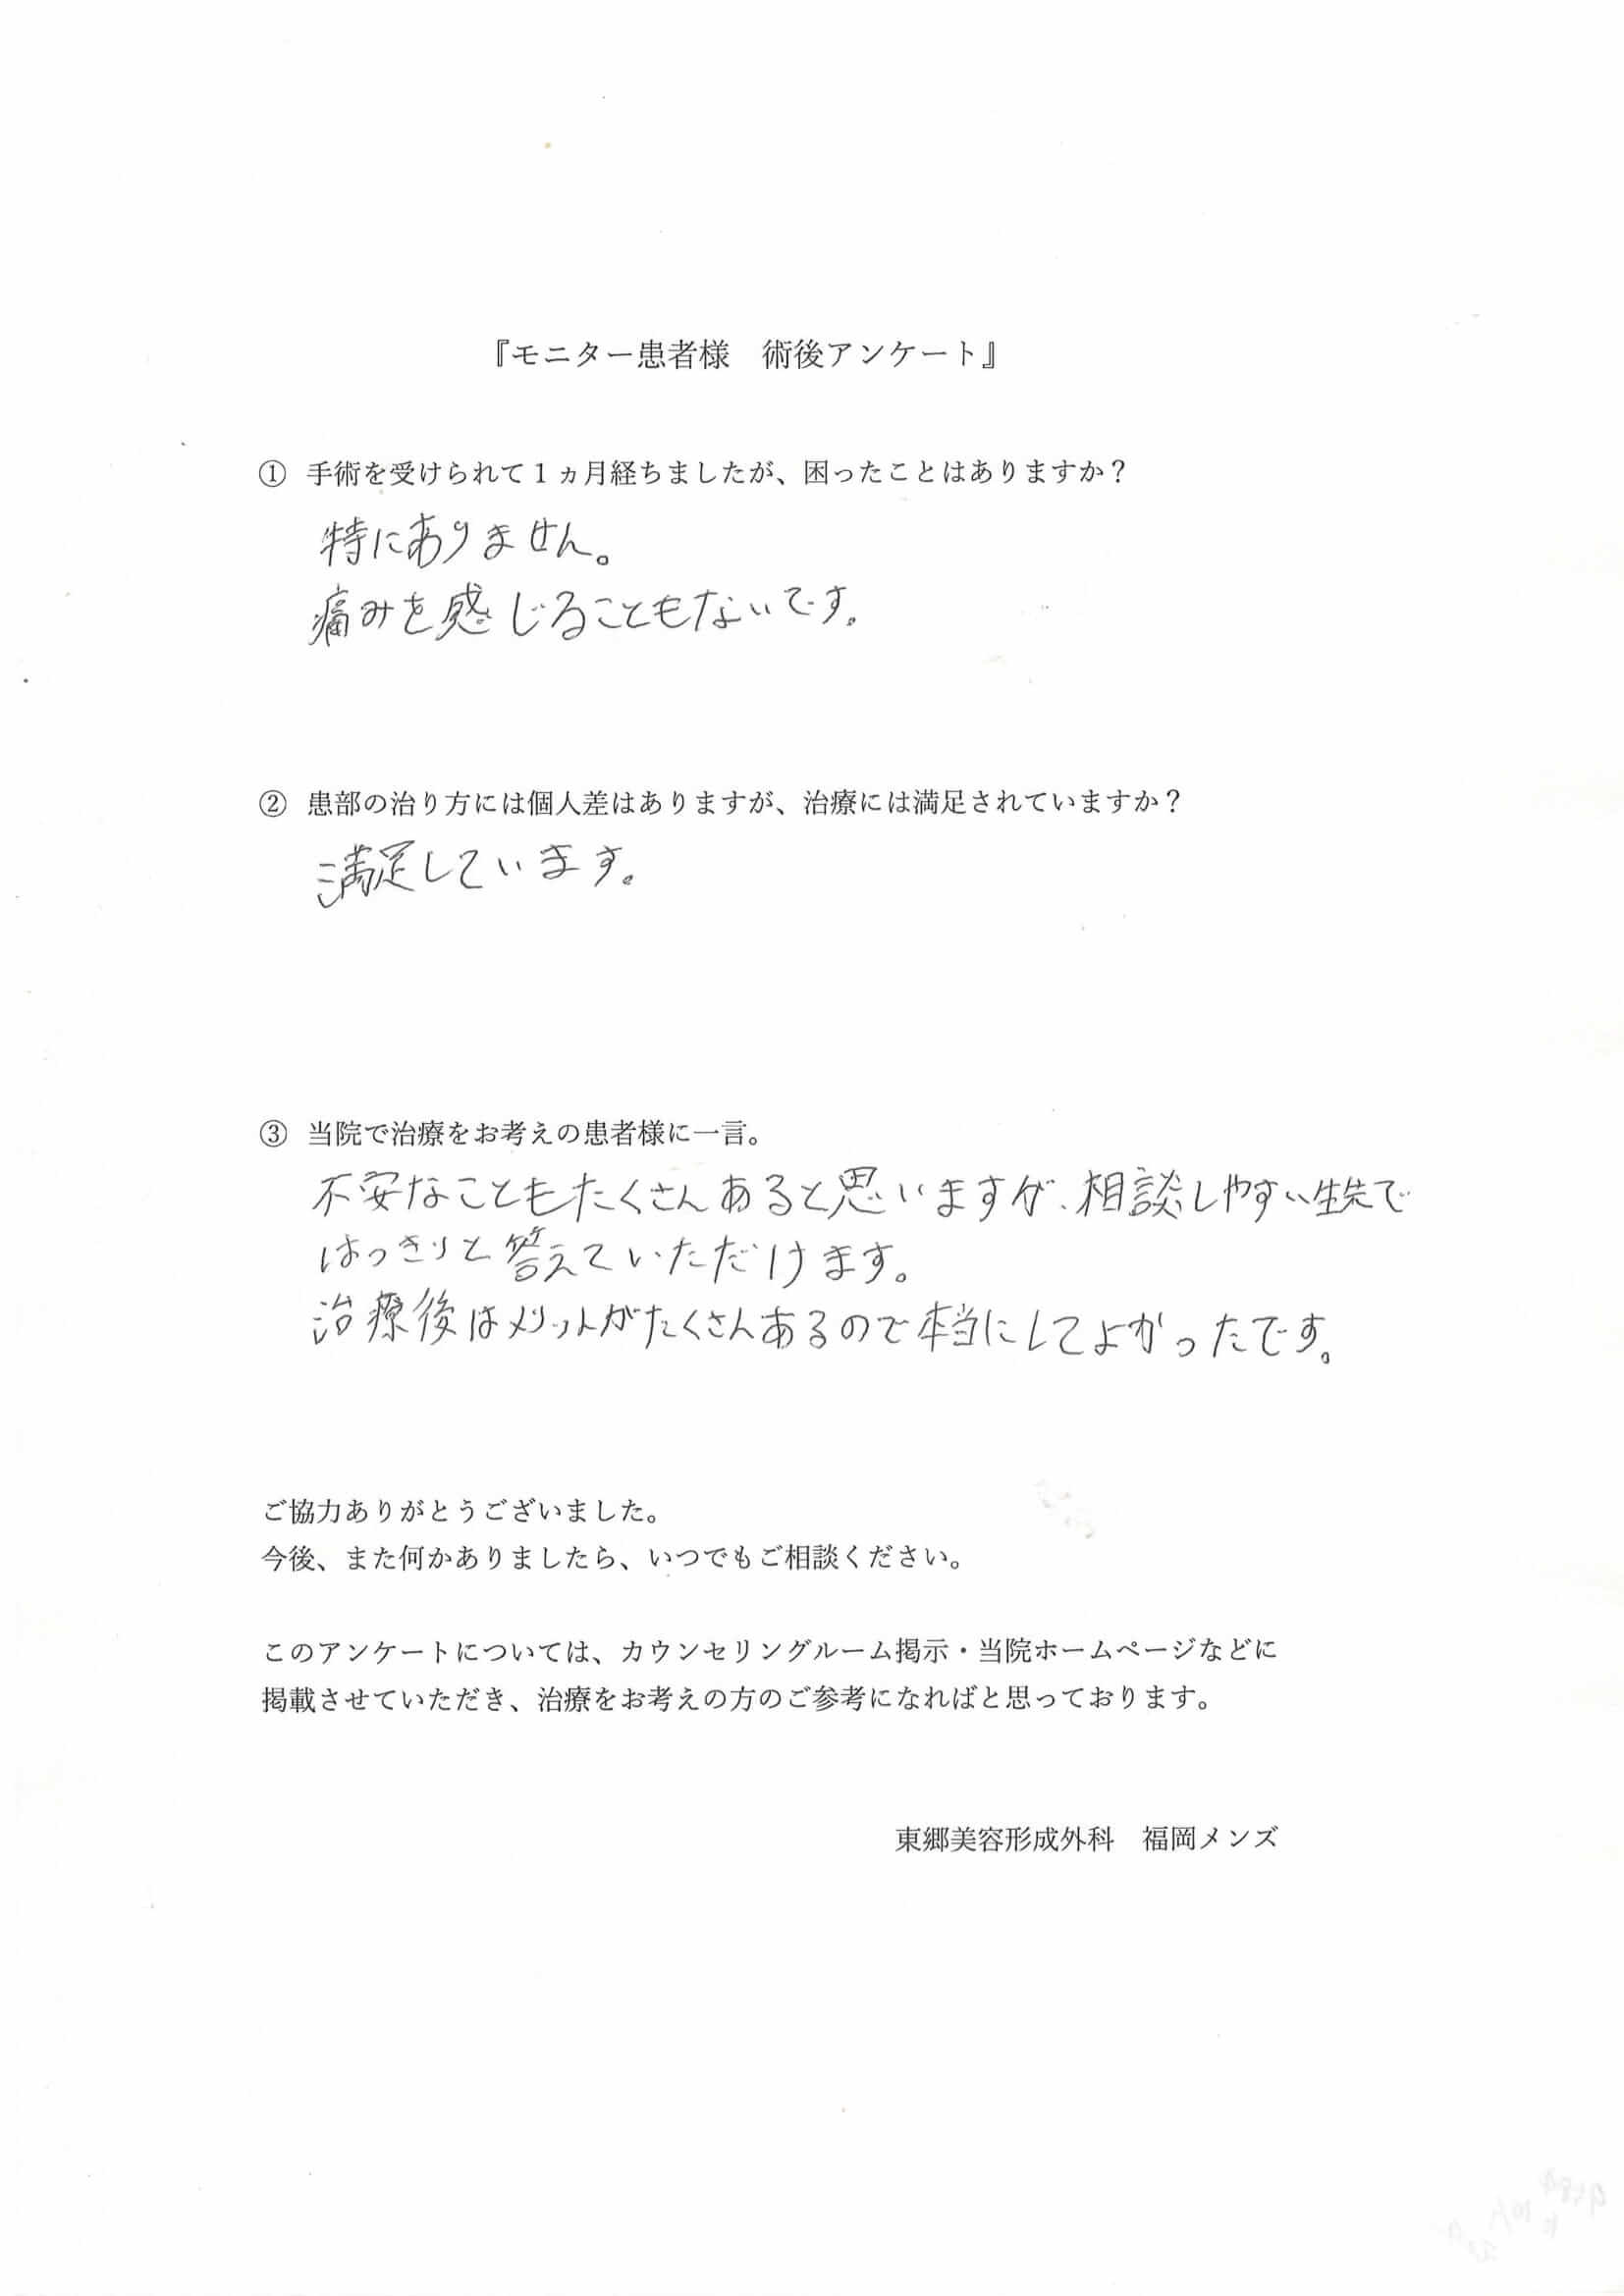 『モニター患者様　術後アンケート』
① 手術を受けられて１ヵ月経ちましたが、困ったことはありますか？
特にありません。
痛みを感じることもないです。
② 患部の治り方には個人差はありますが、治療には満足されていますか？
満足しています。
③ 当院で治療をお考えの患者様に一言。
不安なこともたくさんあると思いますが、相談しやすい先生で
はっきりと答えていただけます。
治療後はメリットがたくさんあるので本当にしてよかったです。
ご協力ありがとうございました。
今後、また何かありましたら、いつでもご相談ください。
このアンケートについては、カウンセリングルーム掲示・当院ホームページなどに
掲載させていただき、治療をお考えの方のご参考になればと思っております。
東郷美容形成外科　福岡メンズ